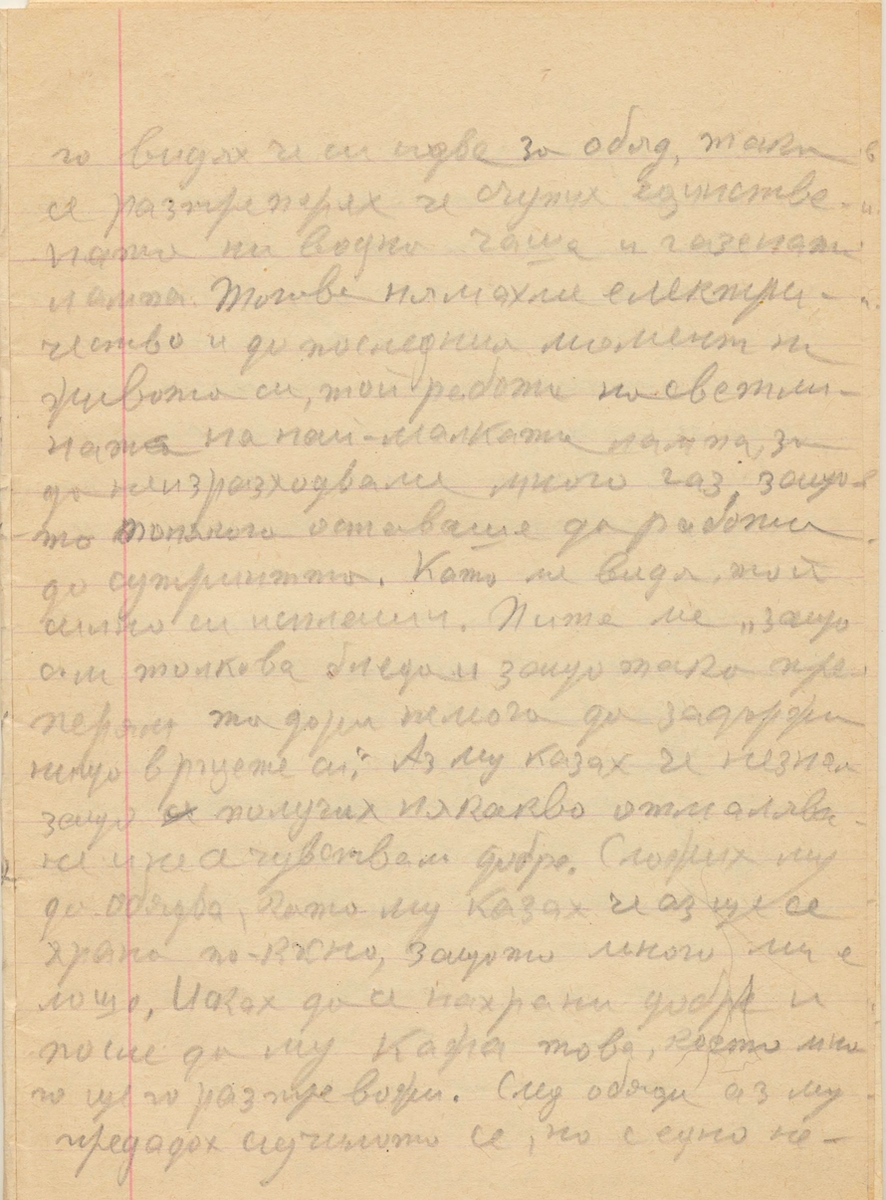 го видях че си идва за обяд, така
се разтреперях че счупих единстве-
ната ни водна чаша и газената
лампа. Тогава нямахме електри-
чество и до последния момент на
живота си, той работи на светли-
ната на най-малката лампа, за
да неизразходваме много газ, защо-
то понякога оставаше да работи
до сутринта. Като ме видя, той
силно си исплаши. Пита ме „защо
съм толкова бледа и защо така тре-
перям та дори немога да задържа
нищо в ръцете си," Аз му казах че незная
защо получих някакво отмалява-
не и не се чувствам добре. Сложих му
да обядва, като му казах че аз ще се
храня по-късно, защото много ми е
лошо, Исках да се нахрани добре и
после да му кажа това, което мно
го ще го разтревожи. След обяда аз му
предадох случилото се, но с едно не-